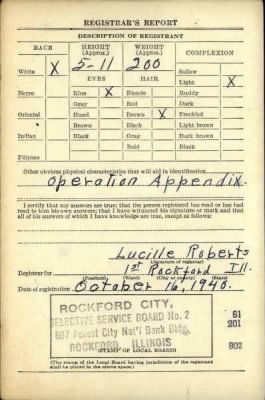 REGISTRAR'S REPORT
DESCRIPTION OF REGISTRANT
RACE HEIGHT (Approx.) WEIGHT (Approx.) COMPLEXION
5-11 200 Sallow
White X EYES HAIR Light X
Negro Blue X Blonde Ruddy
Gray Red Dark
Oriental Hazel Brown X Freckled
Brown Black Light brown
Indian Black Gray Dark brown
Bald Black
Filipino
Other obvious physical characteristics that will aid in identification
Operation Appendix.
I certify that my answers are true; that the person registered has read or has had read to him his own answers; that I have witnessed his signature or mark and that all of his answers of which I have knowledge are true, except as follows:
Lucille Roberts
(Signature of registrar)
Registrar for 1st Rockford Ill.
(Precinct) (Ward) (City or county) (State)
Date of registration October 16, 1940.
ROCKFORD CITY, 61
SELECTIVE SERVICE BOARD No. 2 201
607 Forest City Nat'l Bank Bldg.
ROCKFORD, ILLINOIS 802
(STAMP OF LOCAL BOARD)
(The stamp of the Local Board having jurisdiction of the registrant shall be placed in the above space.)